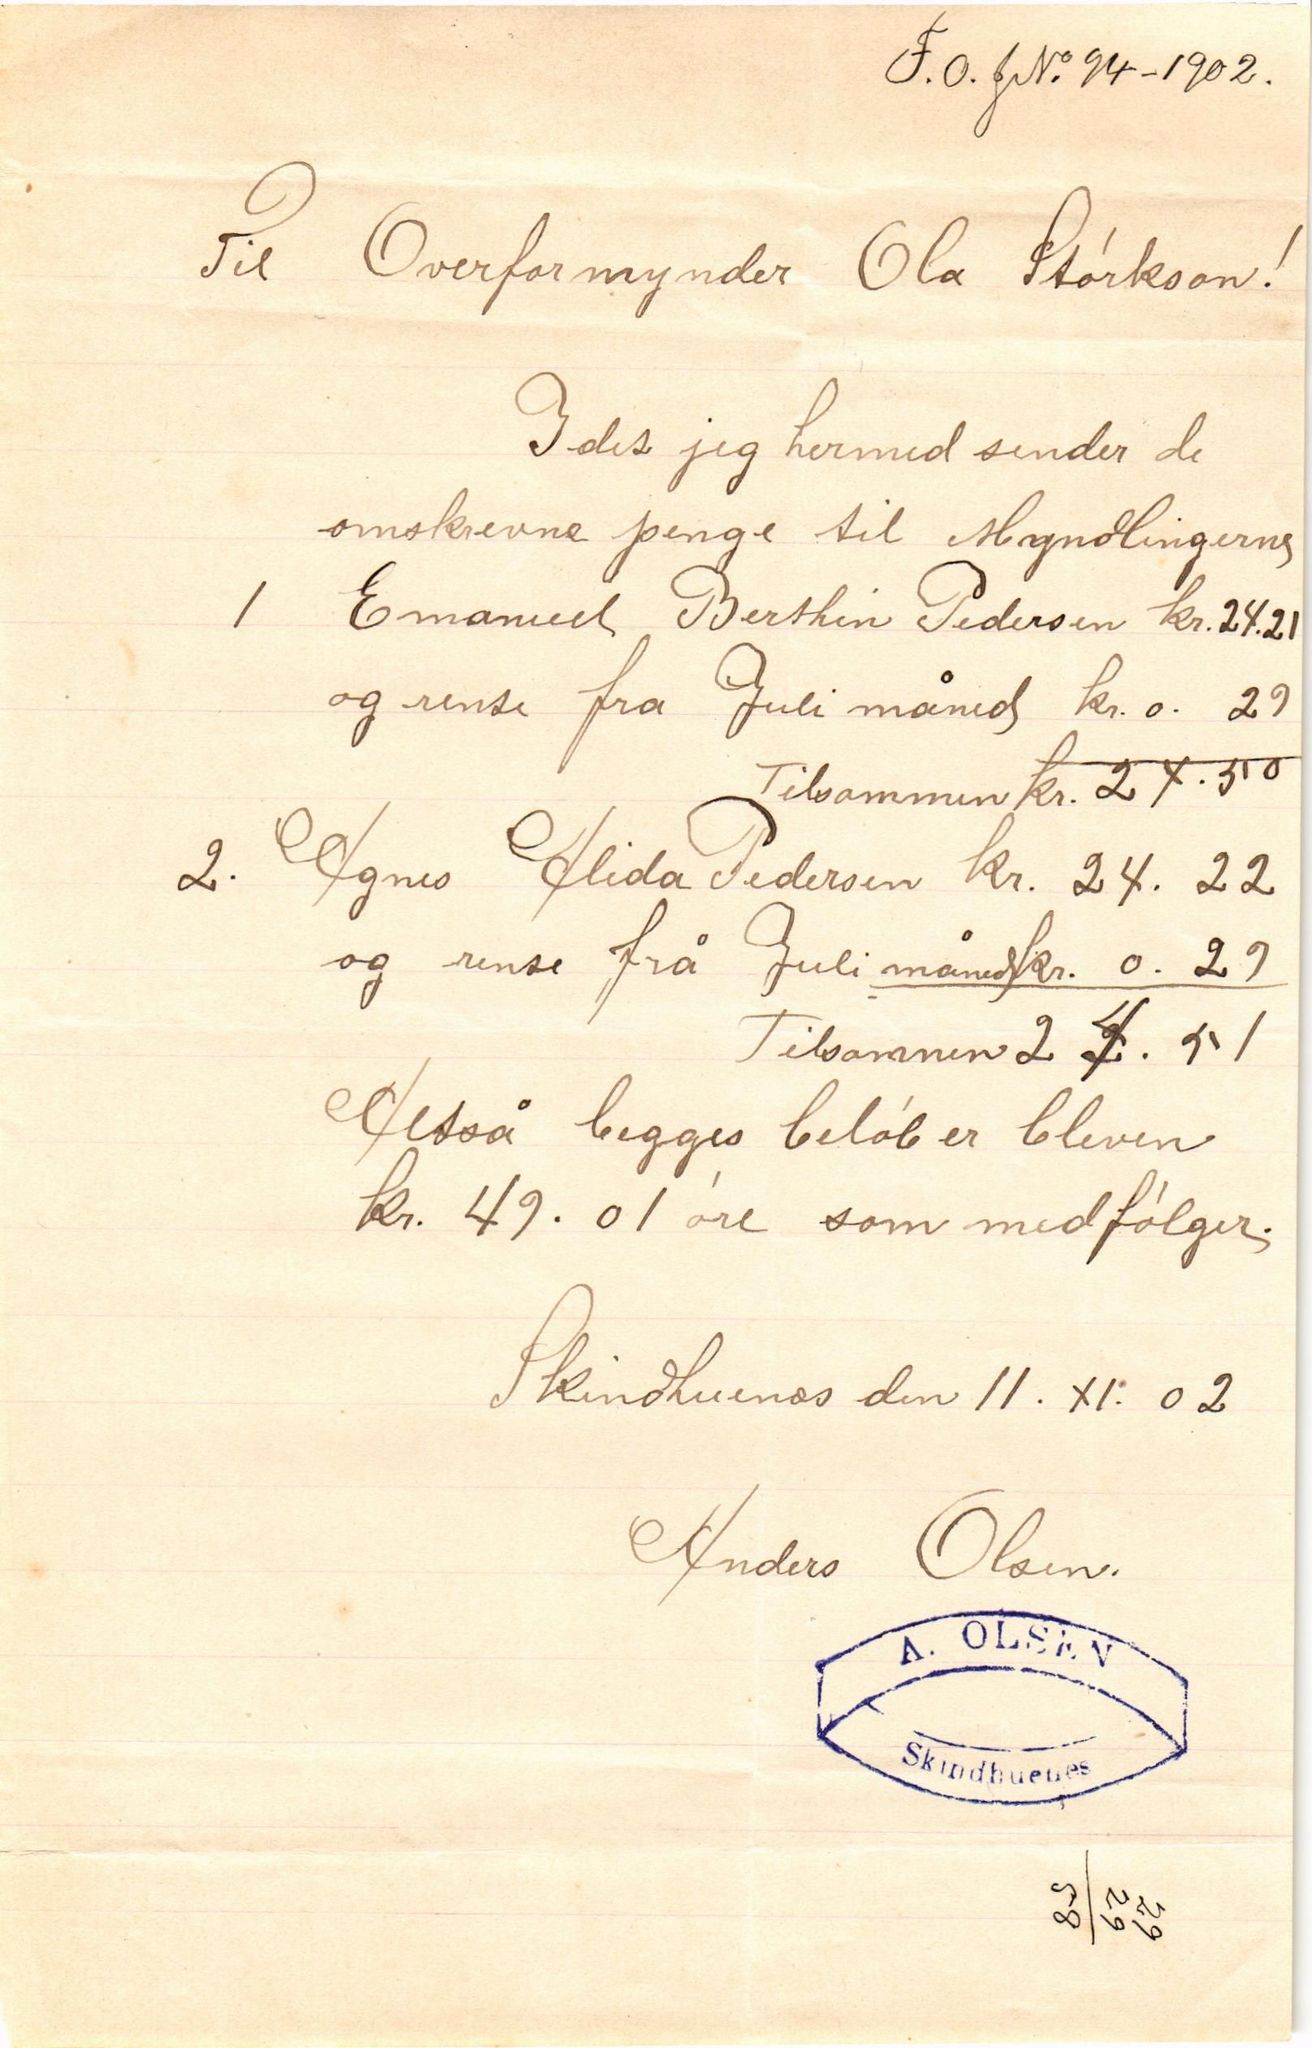 F.O. J No. 94-1902.
Til Overformynder Ola Stórkson!
Idet jeg hermed sender de
omskrevne penge til Myndlingerne
1 Emanuel Berthin Pedersen kr. 24.21
og rente fra Juli måned kr. 0. 29
Tilsammen kr. 24.50
2. Agnes Alida Pedersen kr. 24. 22
og rente frå Juli måned kr. 0. 29
Tilsammen 24. 51
Altså begges belób er bleven
kr. 49. 01 óre som medfólger.
Skindhuenes den 11. XI. 02
Anders Olsen.
A. OLSEN
Skindhuenes
29
29
58